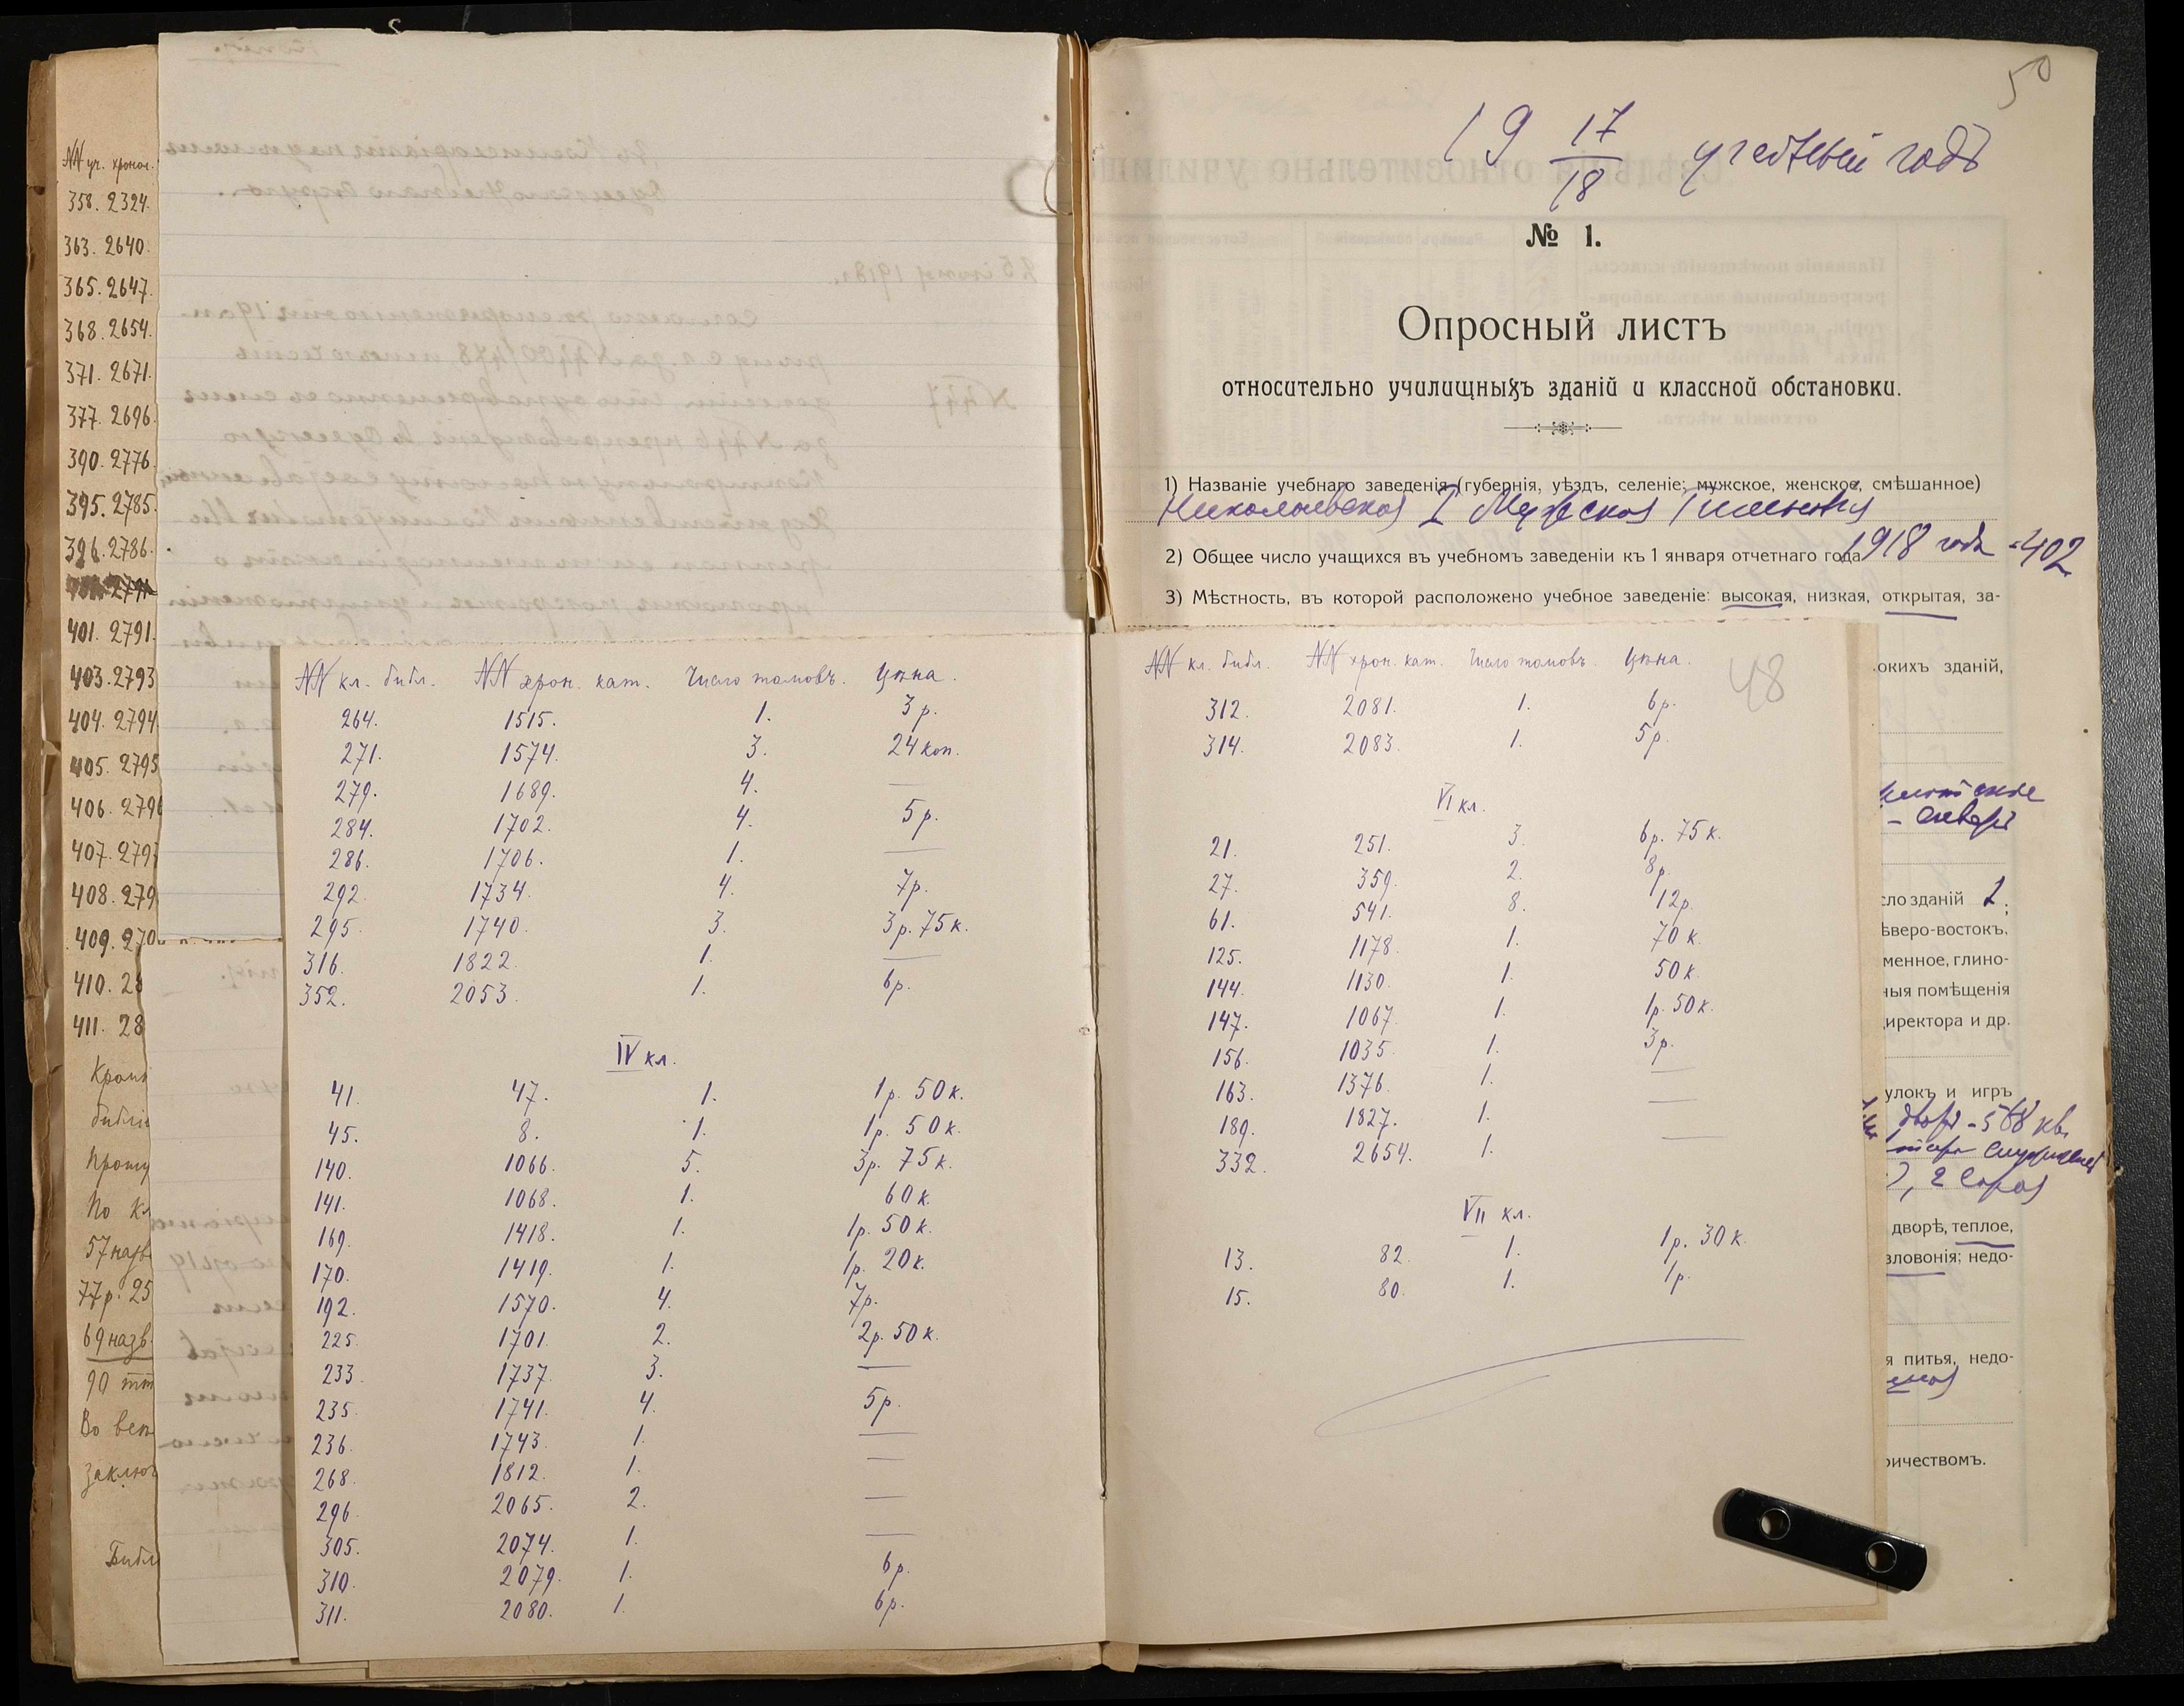 NN уч. хронол.
358. 2324.
363. 2640.
365. 2647.
368. 2654.
371. 2671.
377. 2696.
390. 2776.
395. 2785.
396. 2786.
401. 2791.
403. 2793
404. 2794
405. 2795
406. 2796
407. 2797
408. 279
409. 270
410. 28
411. 28
Кром
библі
По кл
57 назв
77 р. 25
69 назв
90 тт
Во все
заключ
Библ
NN кл. библ. NN хрон. кат. Число томовъ. Цѣна.
264. 1515. 1. 3 р.
271. 1574. 3. 24 коп.
279. 1689. 4. —
284. 1702. 4. 5 р.
286. 1706. 1. —
292. 1734. 4. 7р.
295. 1740. 3. 3 р. 75 к.
316. 1822. 1. —
352. 2053. 1. 6р.
IV кл.
41. 47. 1. 1 р. 50 к.
45. 8. 1. 1р. 50 к.
140. 1066. 5. 3р. 75 к.
141. 1068. 1. 60 к.
169. 1418. 1. 1р. 50 к.
170. 1419. 1. 1р. 20 к.
192. 1570. 4. 7р.
225. 1701. 2. 2р. 50 к.
233. 1737. 3. —
235. 1741. 4. 5р.
236. 1743. 1. —
268. 1812. 1. —
296. 2065. 2. —
305. 2074. 1. —
310. 2079. 1. 6 р.
311. 2080. 1. 6р.
50
19 17/18 учебный годъ
№ 1.
Опросный листъ
относительно училищныхъ зданій и классной обстановки.
1) Названіе учебнаго заведенія (губернія, уѣздъ, селеніе; мужское, женское, смѣшанное)
Николаевская I Мужская Гимназія
2) Общее число учащихся въ учебномъ заведеніи къ 1 января отчетнаго года 1918 года - 402
3) Мѣстность, въ которой расположено учебное заведеніе: высокая, низкая, открытая, за-
48
NN кл. библ. NN хрон. кат. Число томовъ. Цѣна.
312. 2081. 1. 6р.
314. 2083. 1. 5р.
VI кл.
21. 251. 3. 6р. 75 к.
27. 359. 2. 8р.
61. 541. 8. 12р.
125. 1178. 1. 70 к.
144. 1130. 1. 50 к.
147. 1067. 1. 1р. 50 к.
156. 1035. 1. 3р.
163. 1376. 1. —
189. 1827. 1. —
332. 2654. 1. —
VII кл.
13. 82. 1. 1р. 30 к.
15. 80. 1. 1р.
окихъ зданій,
сло зданій 1;
ѣверо-востокъ.
менное, глино-
ныя помѣщенія
иректора и др.
улокъ и игръ
двора - 568 кв.
2 сорта
дворѣ, теплое,
зловонія; недо-
я питья, недо-
ричествомъ.